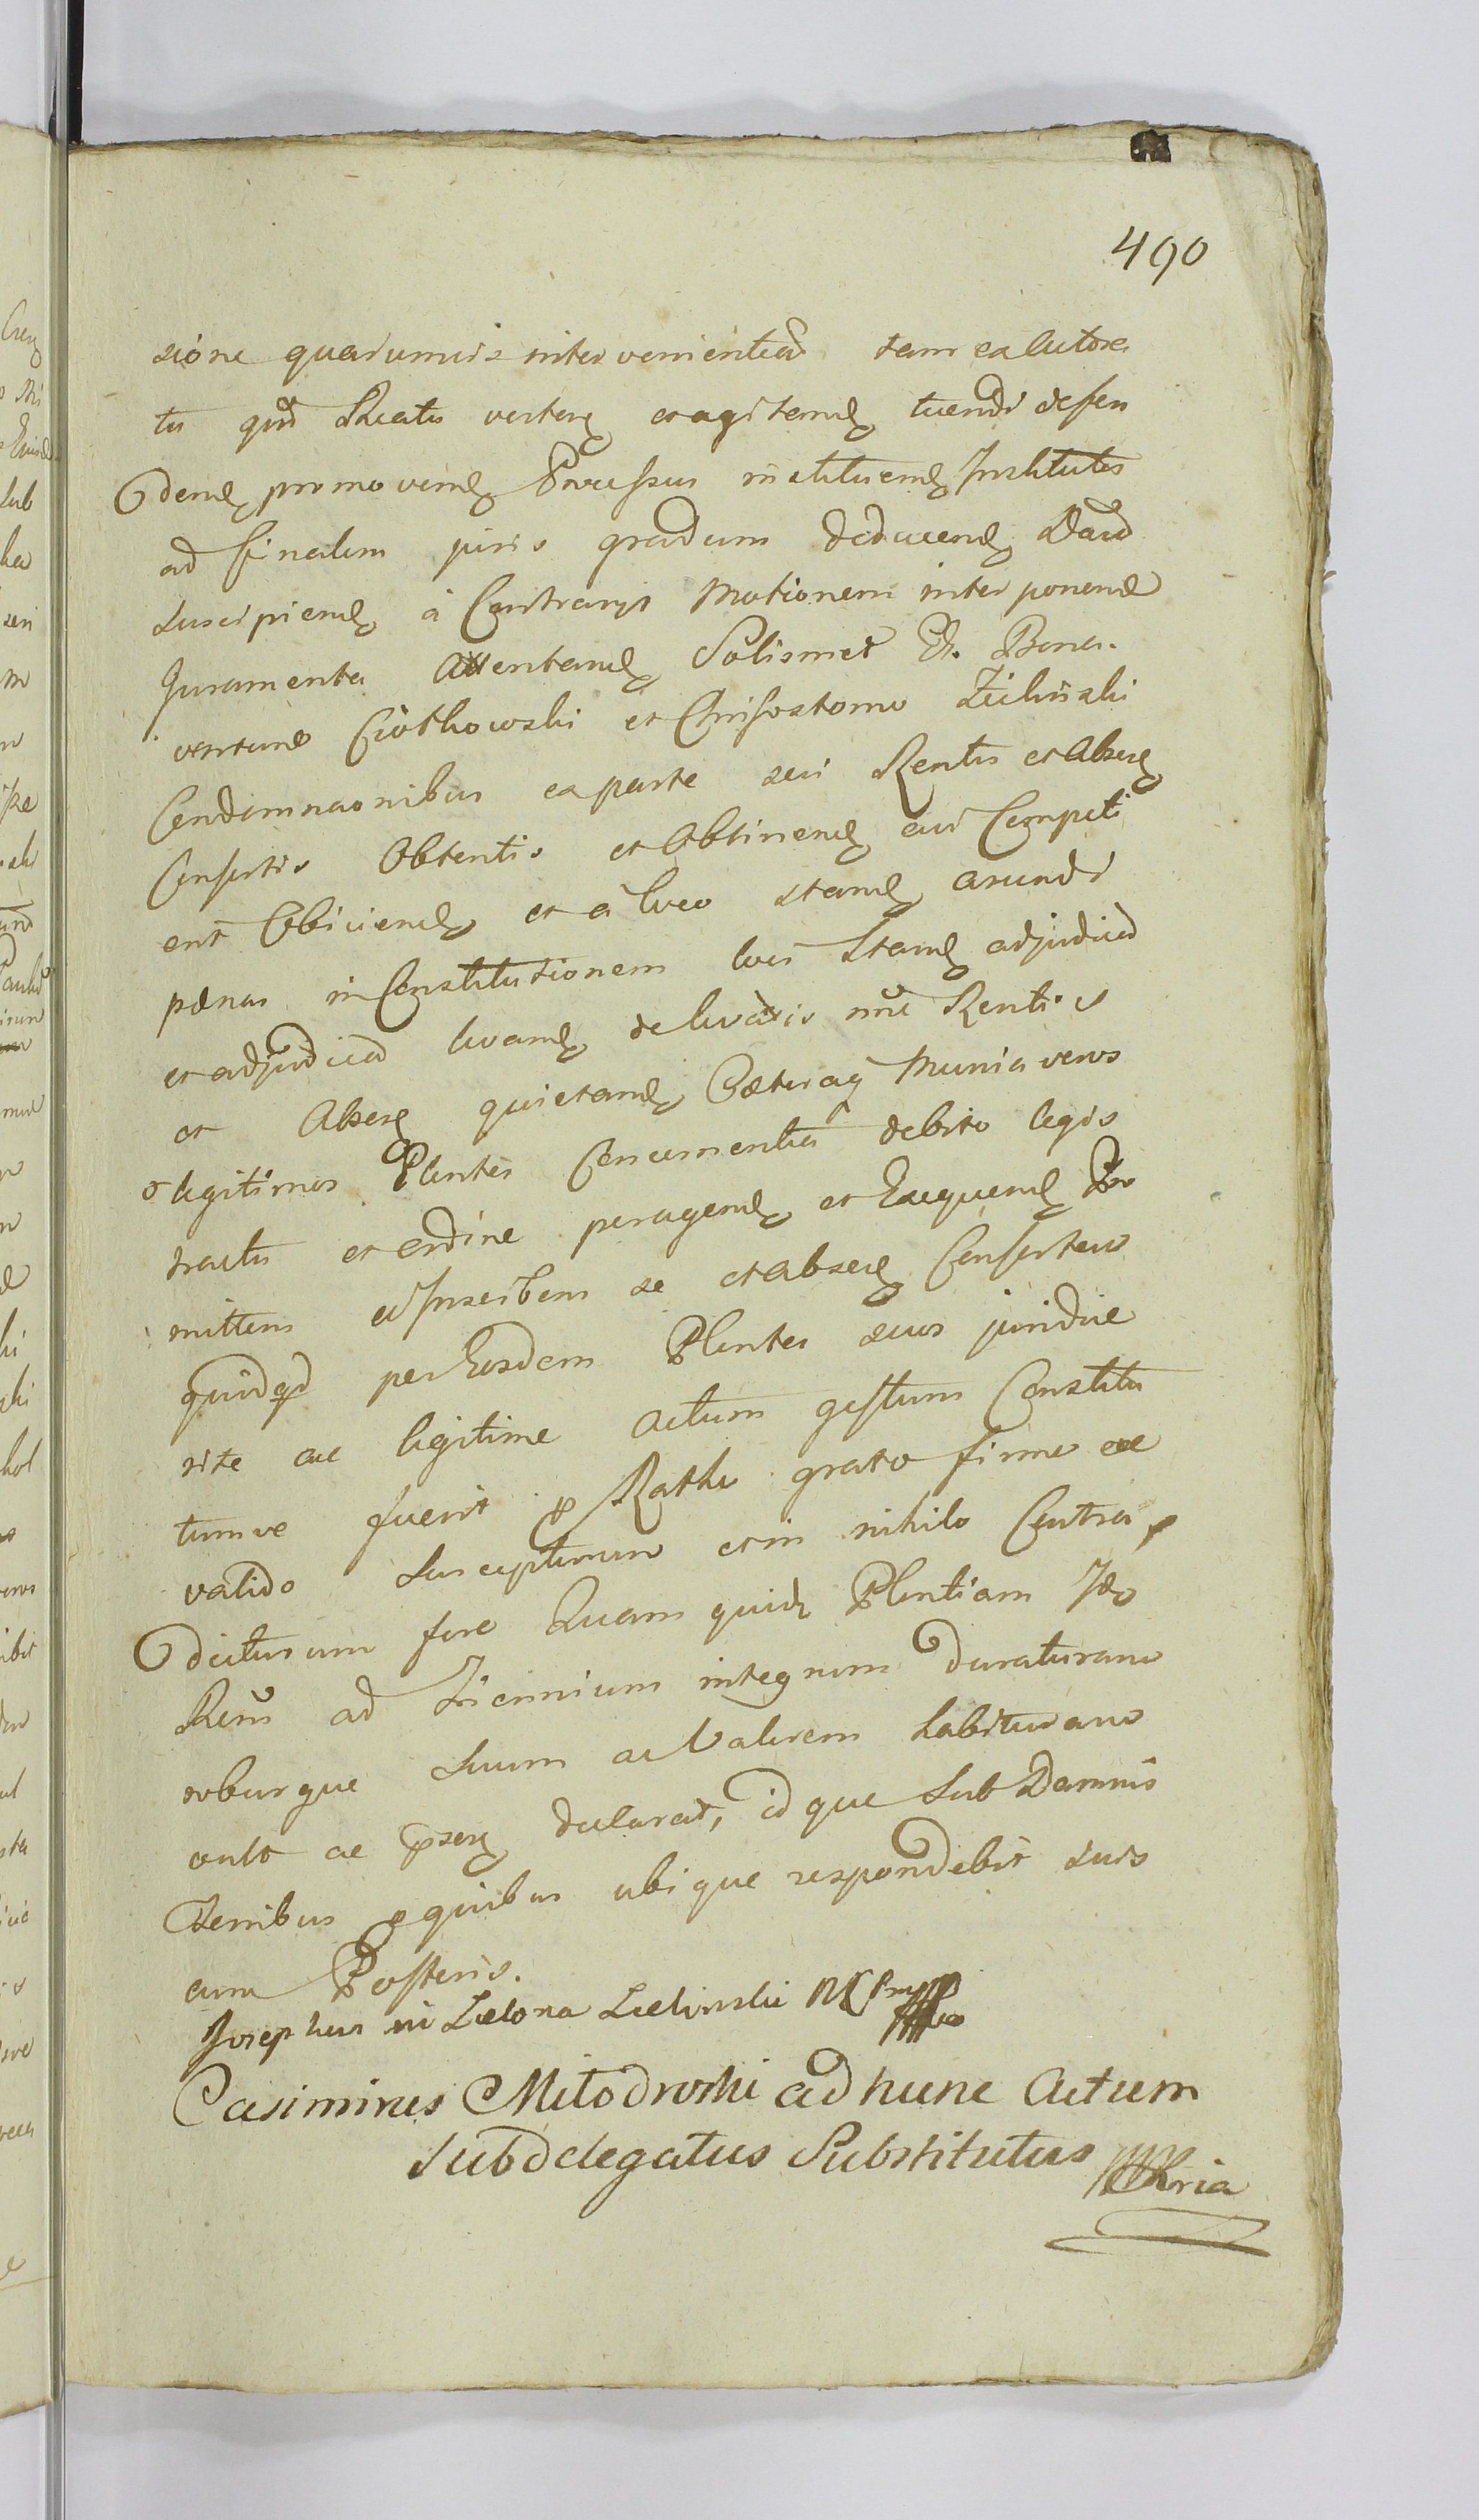 490
sione quarumvis intervenientiũ tam ex Actore
tu qm̃ Reatu verteñ et agitenđ tuendi defen
denđ promovenđ Processus instituenđ Institutos
ad finalem juris gradum deducenđ
suscipienđ à Contrarys Motionem interponenđ
Juramenta attentanđ Solismet Bona
venturae Ciołkowski et Chrisostomo Zieliński
Condemnaonibus ex parte sui Rentis et Abseñ
Consortis Obtentis et Obtinenđ eas Competi
ent Obiicienđ et à loco standi arundi
paenas in Constitutionem loci Standi adjudicad
et adjudicad levanđ de levatis nõe Rentis
et Abseñ quietanđ Caeteraq Munia veros
legitimos Plentes Concernentia debito legis
tractu et ordine peragenđ et Exequenđ Pro
mittens Inscribens se et absenđ Consortem
quidqd per Eosdem Plentes suos juridice
rite ac legitime actum gestum Constitu
tumve fuerit p Ratho grato firmo ac
valido Suscepturum et in nihilo Contra
dicturum fore Quam quid Plentiam Ide
Rens ad Triennium integrum duraturam
roburque suum ac Valorem habituram
vult ac pseñ declarat, id que Sub Damnis
Terribus p quibus ubique respondebit suis
cum Posteris.
Josephus in Zielona Zielinski
Casimirus Młodroski ad hunc Actum
Subdelegatus Substitutus